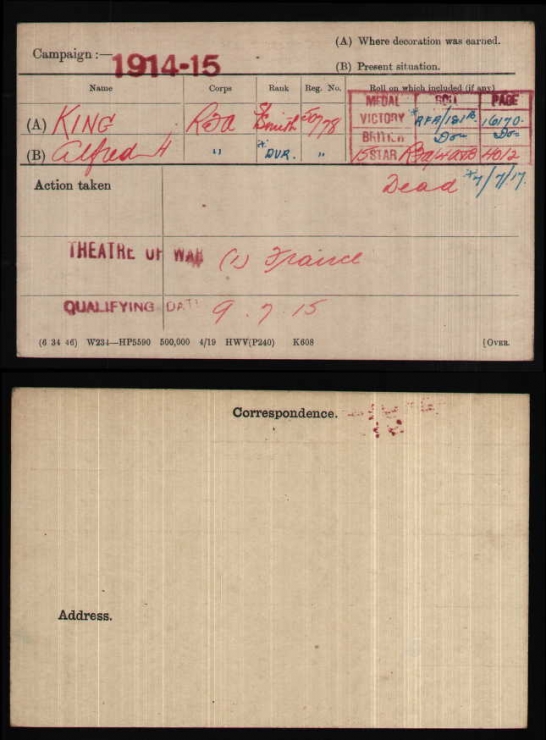 (A) Where decoration was earned.
Campaign :— 1914-15
(B) Present situation.
Name Corps Rank Reg. No. Roll on which included (if any)
MEDAL ROLL PAGE
(A) KING RFA S/Smith 50778 VICTORY RFA/181B 16170
BRITISH Do— Do—
(B) Alfred H " DVR. " 15 STAR 40/2
Action taken Dead 7/7/17.
THEATRE OF WAR (1) France
QUALIFYING DATE 9.7.15
(6 34 46) W234—HP5590 500,000 4/19 HWV(P240) K608 [OVER.
Correspondence.
Address.